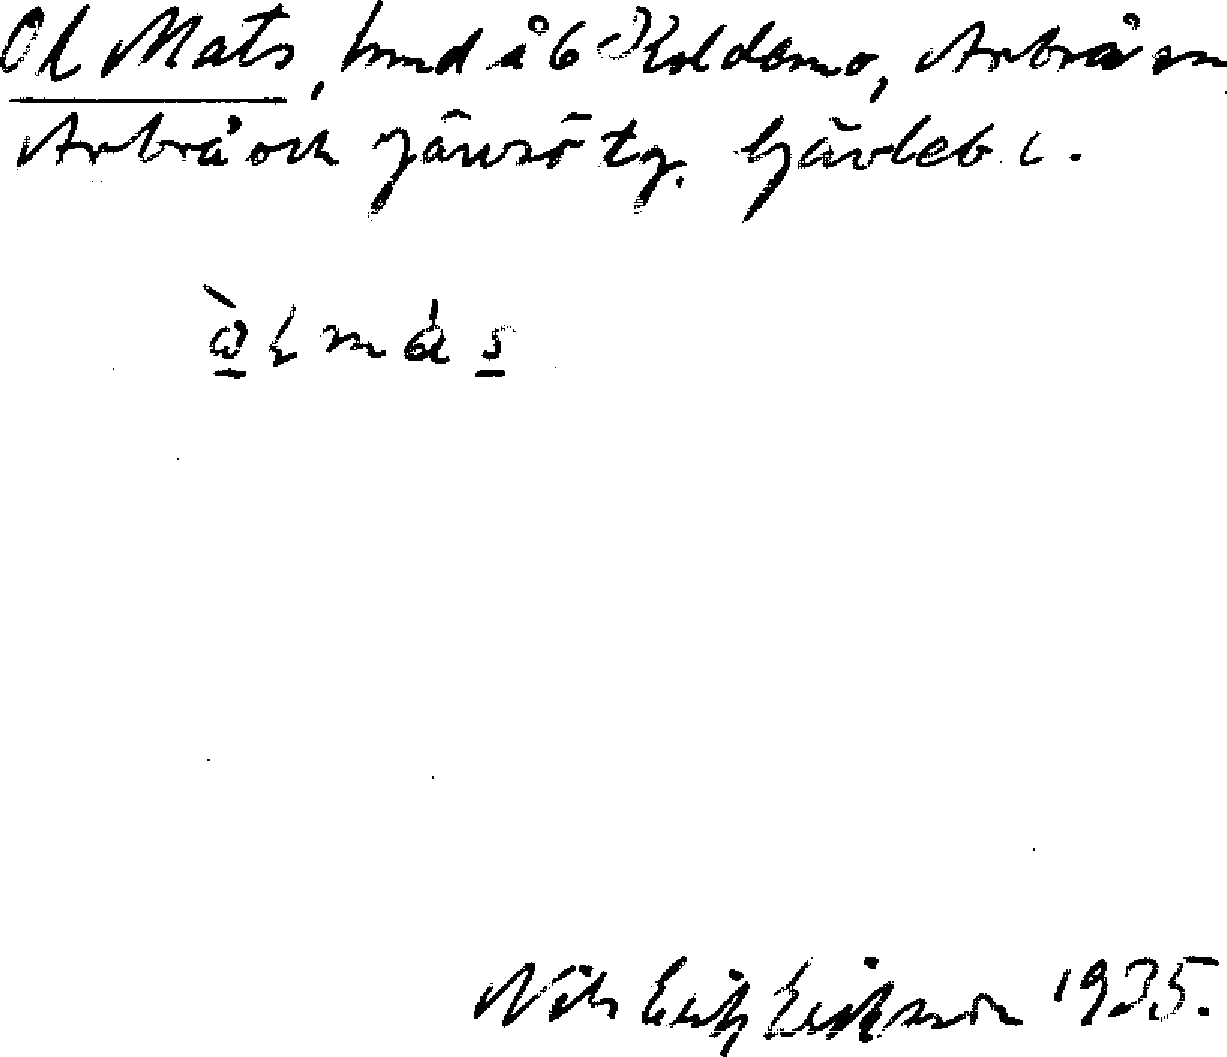 Ol Mats, hmd å 6 Koldemo, Arbrå sn
Arbrå och Järvsö tg. Gävleb. l.
Nils Erik Eriksson 1935.